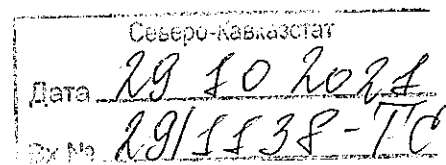 Северо-Кавказстат
Дата 29 10 2021
Вх № 29/1138-ТС